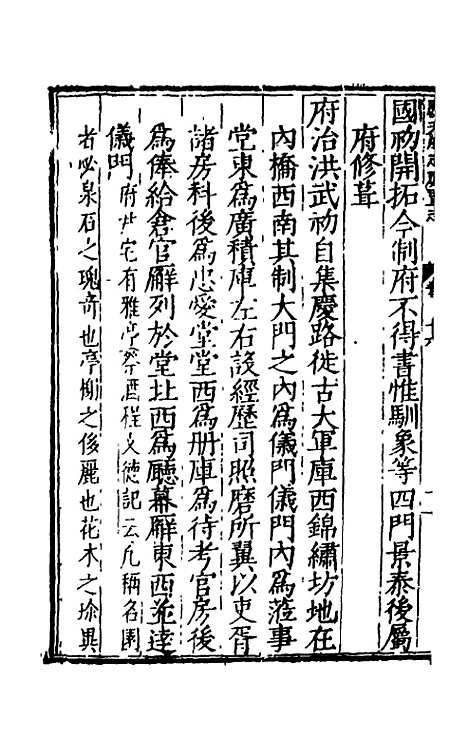 國初開拓今制府不得書惟馴象等四門景泰後屬
府修葺
府治洪武初自集慶路徙古大軍庫西錦繡坊地在
內橋西南其制大門之內為儀門儀門內為蒞事
堂東為廣積庫左右設經歷司照磨所翼以吏胥
諸房科後為忠愛堂堂西為册庫為待考官房後
為俸給倉官廨列於堂址西為廳幕廨東西並達
儀門府丞宅有雅亭祭酒程文德記云凡稱名園
者必泉石之瑰奇也亭榭之侈麗也花木之珍異